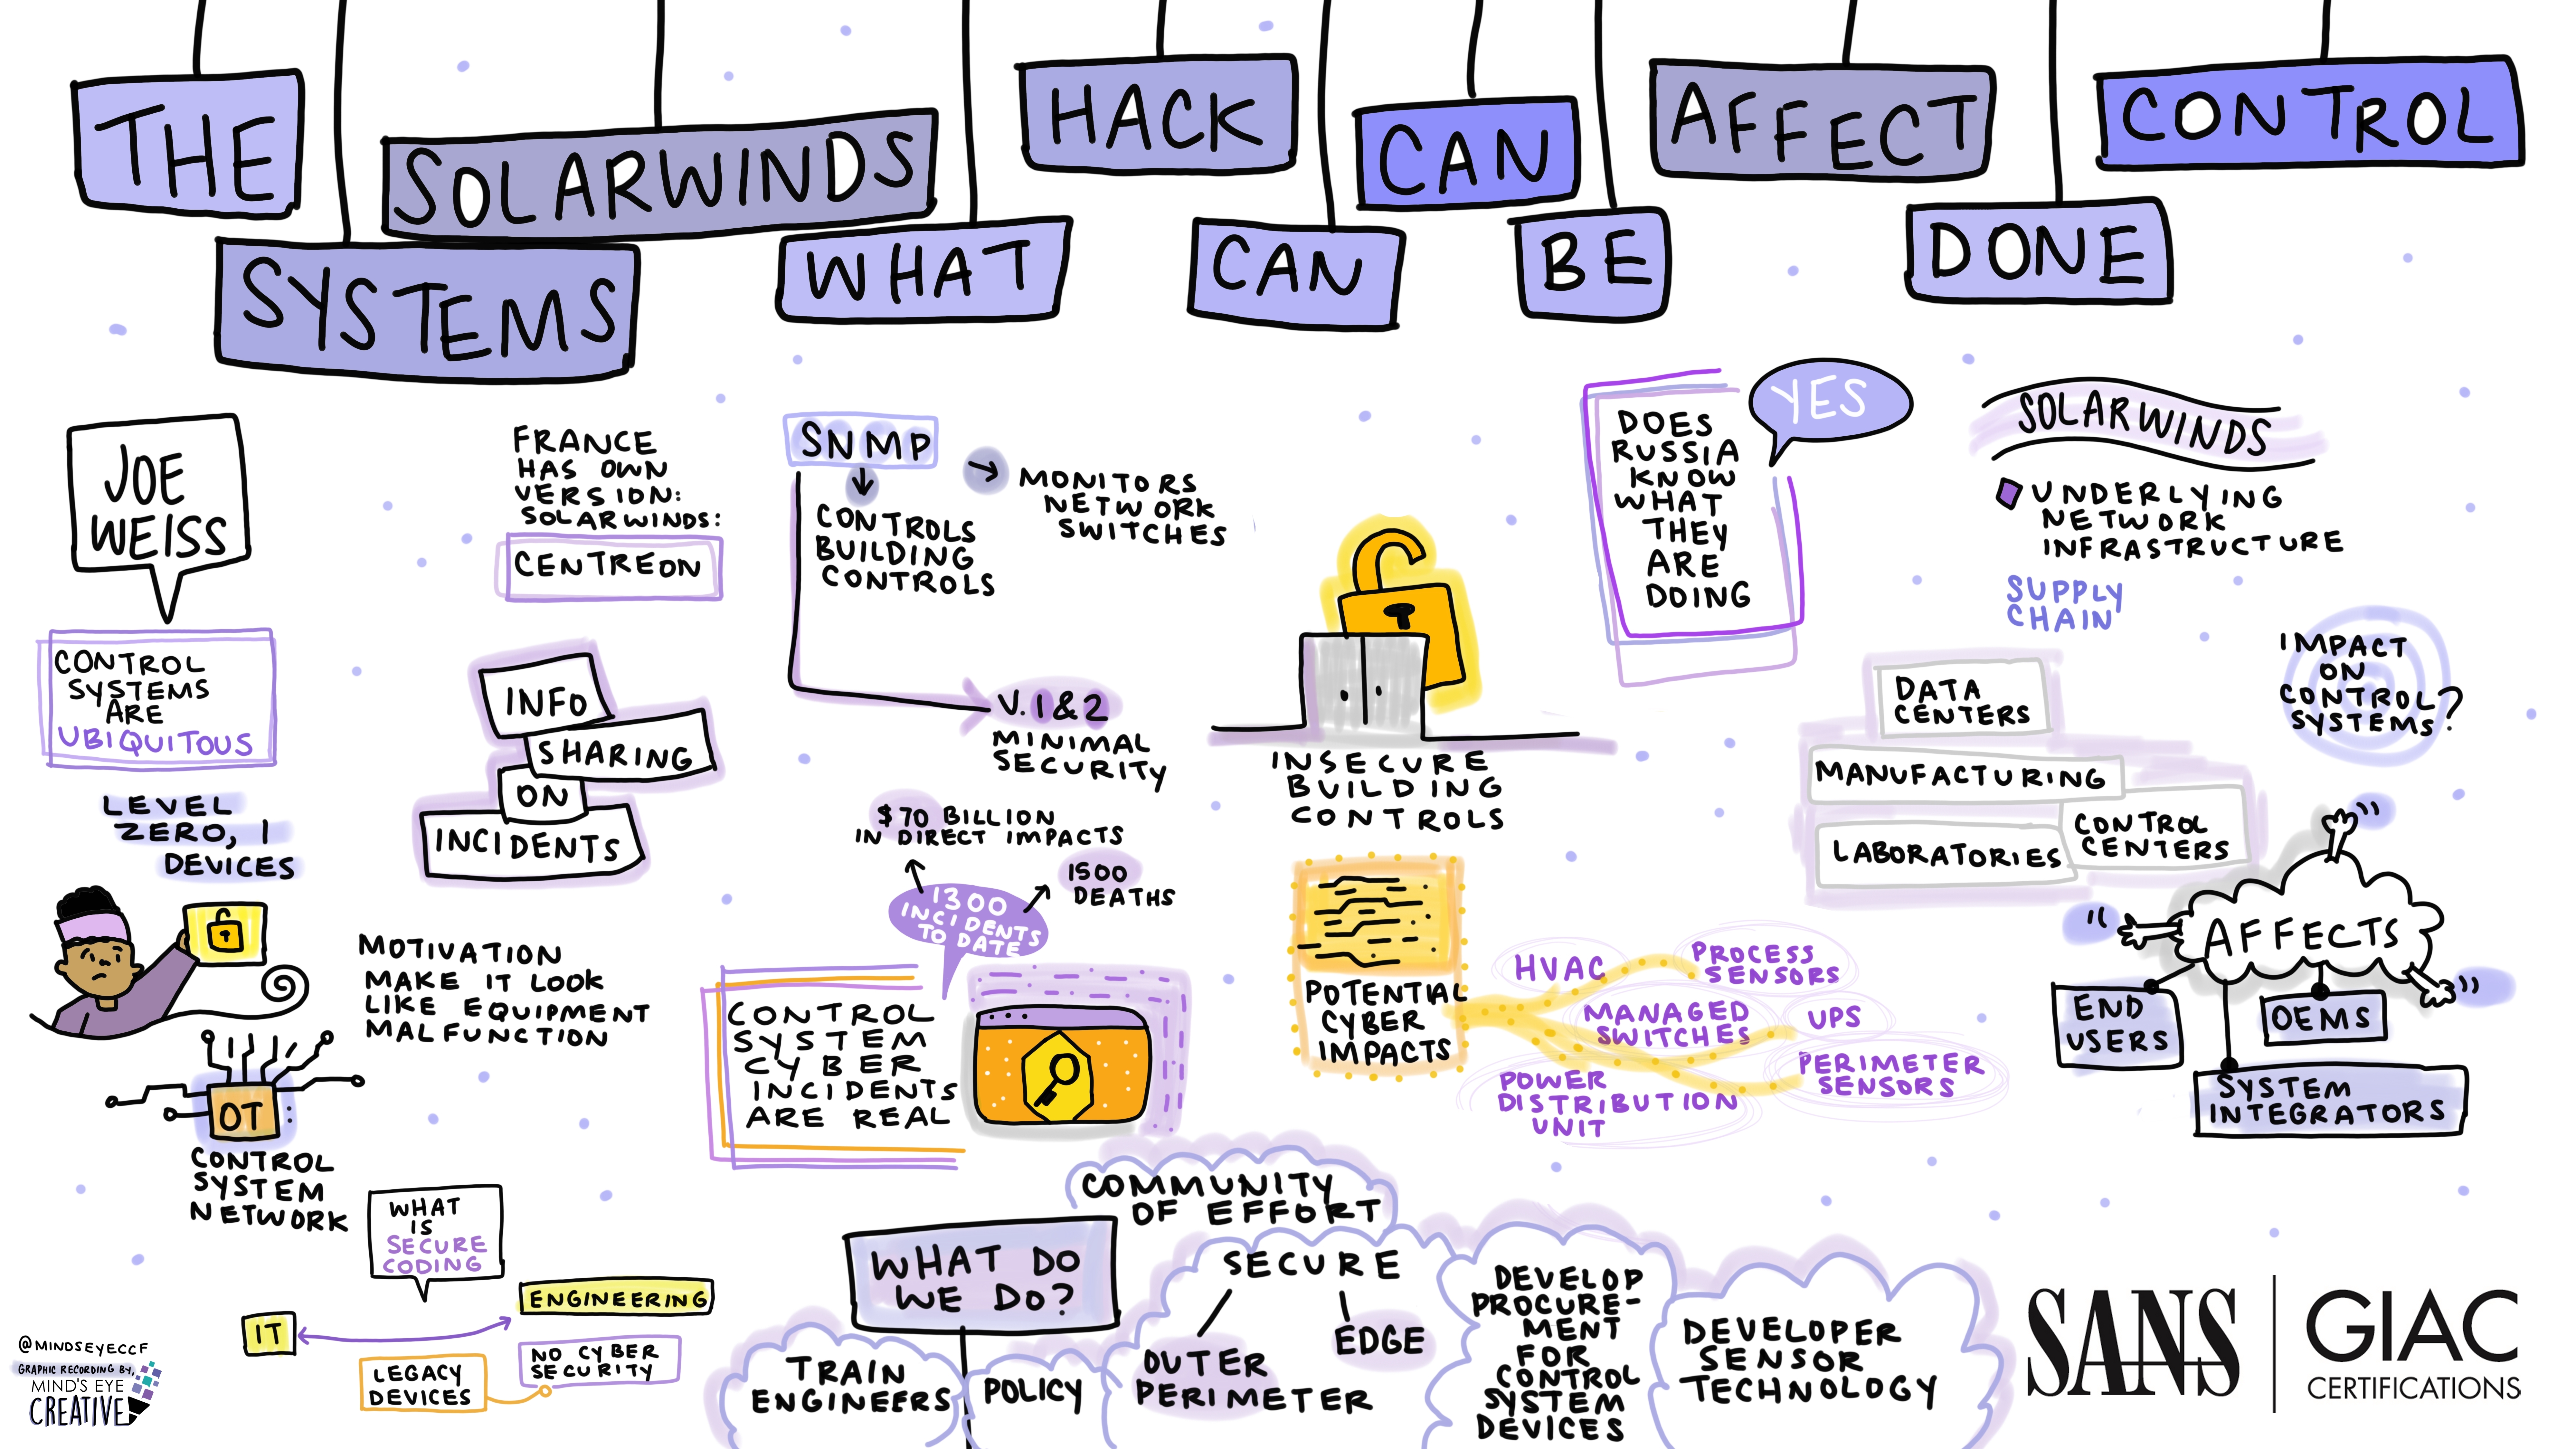 THE SOLARWINDS HACK CAN AFFECT CONTROL
SYSTEMS WHAT CAN BE DONE
JOE
WEISS
CONTROL
SYSTEMS
ARE
UBIQUITOUS
LEVEL
ZERO, 1
DEVICES
OT:
CONTROL
SYSTEM
NETWORK
FRANCE
HAS OWN
VERSION:
SOLARWINDS:
CENTREON
INFO
SHARING
ON
INCIDENTS
MOTIVATION
MAKE IT LOOK
LIKE EQUIPMENT
MALFUNCTION
WHAT
IS
SECURE
CODING
IT
ENGINEERING
LEGACY
DEVICES
NO CYBER
SECURITY
SNMP
CONTROLS
BUILDING
CONTROLS
MONITORS
NETWORK
SWITCHES
V. 1 & 2
MINIMAL
SECURITY
$70 BILLION
IN DIRECT IMPACTS
1500
DEATHS
1300
INCIDENTS
TO DATE
CONTROL
SYSTEM
CYBER
INCIDENTS
ARE REAL
INSECURE
BUILDING
CONTROLS
POTENTIAL
CYBER
IMPACTS
HVAC
PROCESS
SENSORS
MANAGED
SWITCHES
UPS
POWER
DISTRIBUTION
UNIT
PERIMETER
SENSORS
DOES
RUSSIA
KNOW
WHAT
THEY
ARE
DOING
YES
SOLARWINDS
UNDERLYING
NETWORK
INFRASTRUCTURE
SUPPLY
CHAIN
IMPACT
ON
CONTROL
SYSTEMS?
DATA
CENTERS
MANUFACTURING
CONTROL
CENTERS
LABORATORIES
AFFECTS
END
USERS
OEMS
SYSTEM
INTEGRATORS
WHAT DO
WE DO?
COMMUNITY
OF EFFORT
TRAIN
ENGINEERS
POLICY
SECURE
OUTER
PERIMETER
EDGE
DEVELOP
PROCURE-
MENT
FOR
CONTROL
SYSTEM
DEVICES
DEVELOPER
SENSOR
TECHNOLOGY
@MINDSEYECCF
GRAPHIC RECORDING BY,
MIND'S EYE
CREATIVE
SANS
GIAC
CERTIFICATIONS